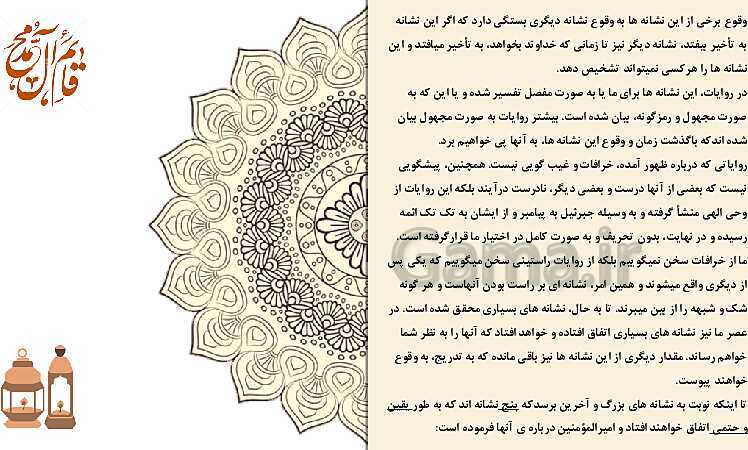 قائم آل محمد
وقوع برخی از این نشانه ها به وقوع نشانه دیگری بستگی دارد که اگر این نشانه
به تأخیر بیفتد، نشانه دیگر نیز تا زمانی که خداوند بخواهد، به تأخیر میافتد و این
نشانه ها را هر کسی نمیتواند تشخیص دهد.
در روایات، این نشانه ها برای ما یا به صورت مفصل تفسیر شده و یا این که به
صورت مجهول و رمزگونه، بیان شده است. بیشتر روایات به صورت مجهول بیان
شده اند که باگذشت زمان و وقوع این نشانه ها، به آنها پی خواهیم برد.
روایاتی که درباره ظهور آمده، خرافات و غیب گویی نیست. همچنین، پیشگویی
نیست که بعضی از آنها درست و بعضی دیگر، نادرست درآیند بلکه این روایات از
وحی الهی منشأ گرفته و به وسیله جبرئیل به پیامبر و از ایشان به تک تک ائمه
رسیده و در نهایت، بدون تحریف و به صورت کامل در اختیار ما قرار گرفته است.
ما از خرافات سخن نمیگوییم بلکه از روایات راستینی سخن میگوییم که یکی پس
از دیگری واقع میشوند و همین امر، نشانه ای بر راست بودن آنهاست و هر گونه
شک و شبهه را از بین میبرند. تا به حال، نشانه های بسیاری محقق شده است. در
عصر ما نیز نشانه های بسیاری اتفاق افتاده و خواهد افتاد که آنها را به نظر شما
خواهم رساند. مقدار دیگری از این نشانه ها نیز باقی مانده که به تدریج، به وقوع
خواهند پیوست.
تا اینکه نوبت به نشانه های بزرگ و آخرین برسدکه پنج نشانه اند که به طور یقین
و حتمی اتفاق خواهند افتاد و امیرالمؤمنین درباره ی آنها فرموده است:
Gama.ir